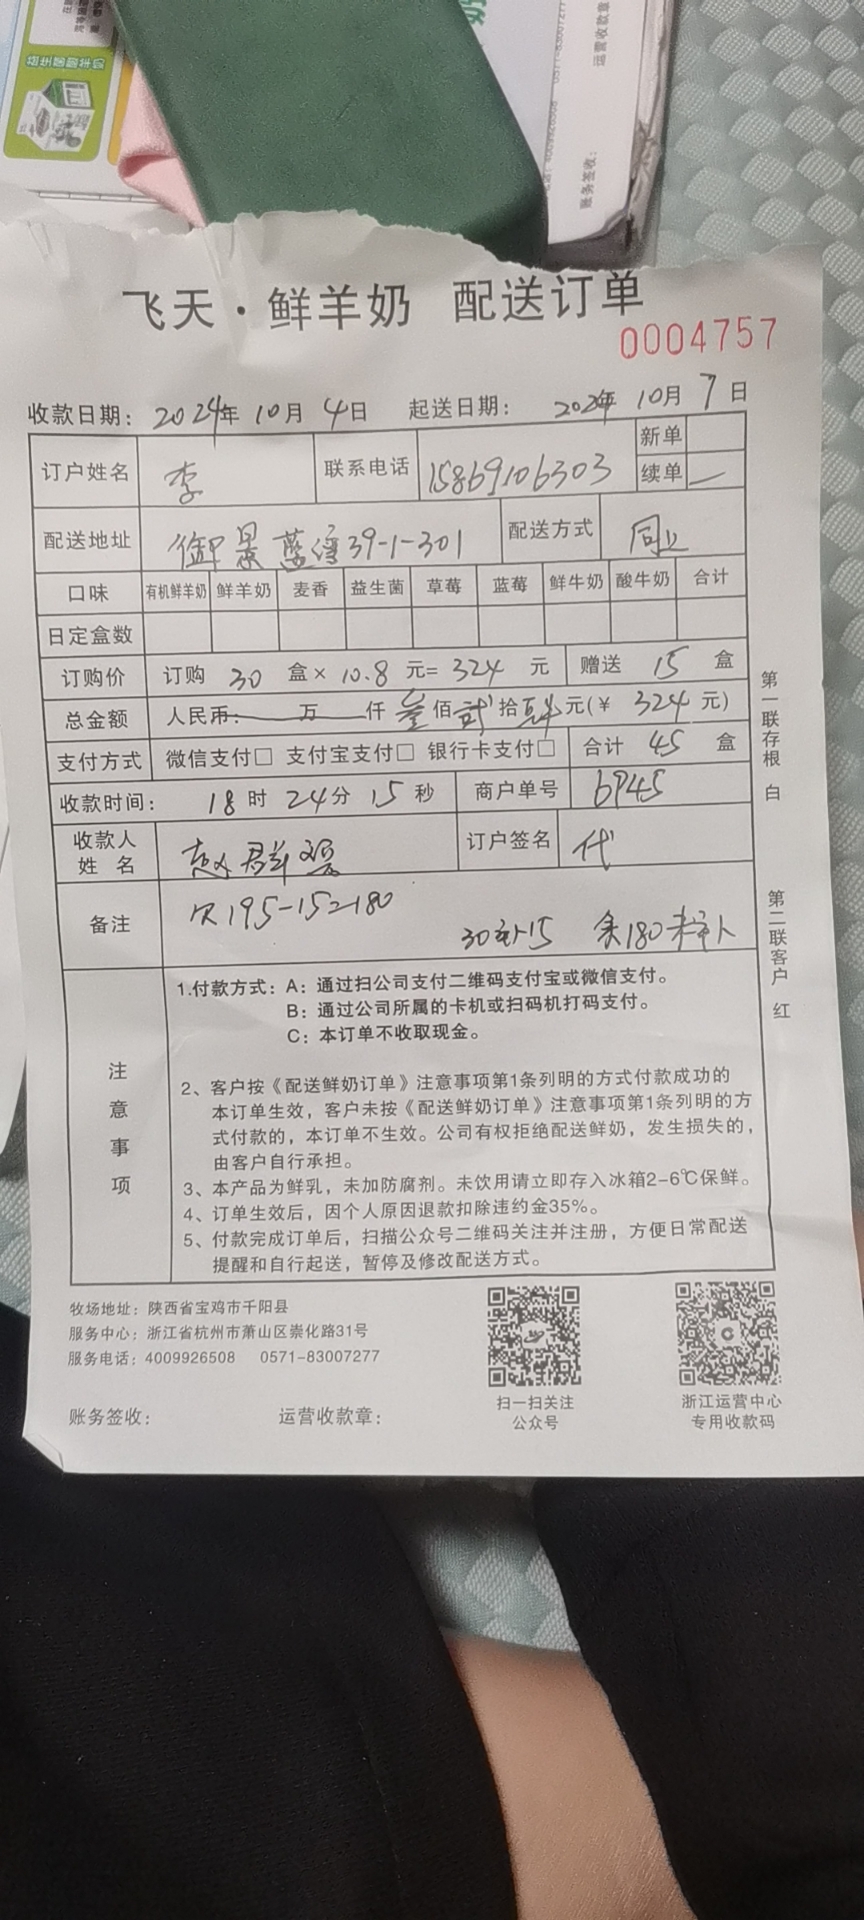 益生菌酸羊奶
账务签收：
运营收款章
飞天·鲜羊奶 配送订单
0004757
收款日期： 2024年 10月 4日 起送日期： 2024年 10月 7日
订户姓名 李 联系电话 15869106303 新单
续单
配送地址 御景蓝 39-1-301 配送方式 同上
口味 有机鲜羊奶 鲜羊奶 麦香 益生菌 草莓 蓝莓 鲜牛奶 酸牛奶 合计
日定盒数
订购价 订购 30 盒× 10.8 元= 324 元 赠送 15 盒
总金额 人民币： 万 仟 叁佰 贰拾 肆元(￥ 324 元)
支付方式 微信支付□ 支付宝支付□ 银行卡支付□ 合计 45 盒
收款时间： 18时 24分 15秒 商户单号 6945
收款人
姓 名 赵群 订户签名 代
备注 欠195-15=180
30 15 余180
注意事项
1.付款方式：A：通过扫公司支付二维码支付宝或微信支付。
B：通过公司所属的卡机或扫码机打码支付。
C：本订单不收取现金。
2、客户按《配送鲜奶订单》注意事项第1条列明的方式付款成功的
本订单生效，客户未按《配送鲜奶订单》注意事项第1条列明的方
式付款的，本订单不生效。公司有权拒绝配送鲜奶，发生损失的，
由客户自行承担。
3、本产品为鲜乳，未加防腐剂。未饮用请立即存入冰箱2-6℃保鲜。
4、订单生效后，因个人原因退款扣除违约金35%。
5、付款完成订单后，扫描公众号二维码关注并注册，方便日常配送
提醒和自行起送，暂停及修改配送方式。
第一联存根 白
第二联客户 红
牧场地址：陕西省宝鸡市千阳县
服务中心：浙江省杭州市萧山区崇化路31号
服务电话：4009926508 0571-83007277
扫一扫关注
公众号
浙江运营中心
专用收款码
账务签收： 运营收款章：